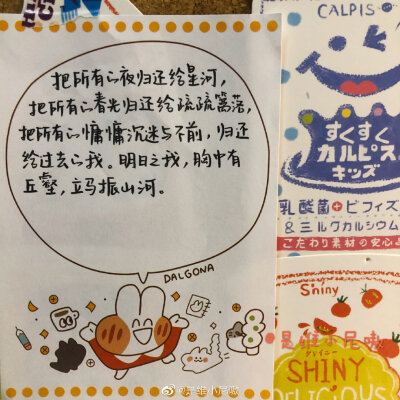 把所有的夜归还给星河，
把所有的春光归还给疏疏篱落，
把所有的慵慵沉迷与不前，归还
给过去的我。明日之我，胸中有
丘壑，立马振山河。
DALGONA
CALPIS
すくすく
カルピス
キッズ
乳酸菌+ビフィズ
&ミルクカルシウム
こだわり素材の安心
Shiny
@是维小尼呦
シャイニー
SHINY
DELICIOUS
@是维小尼呦